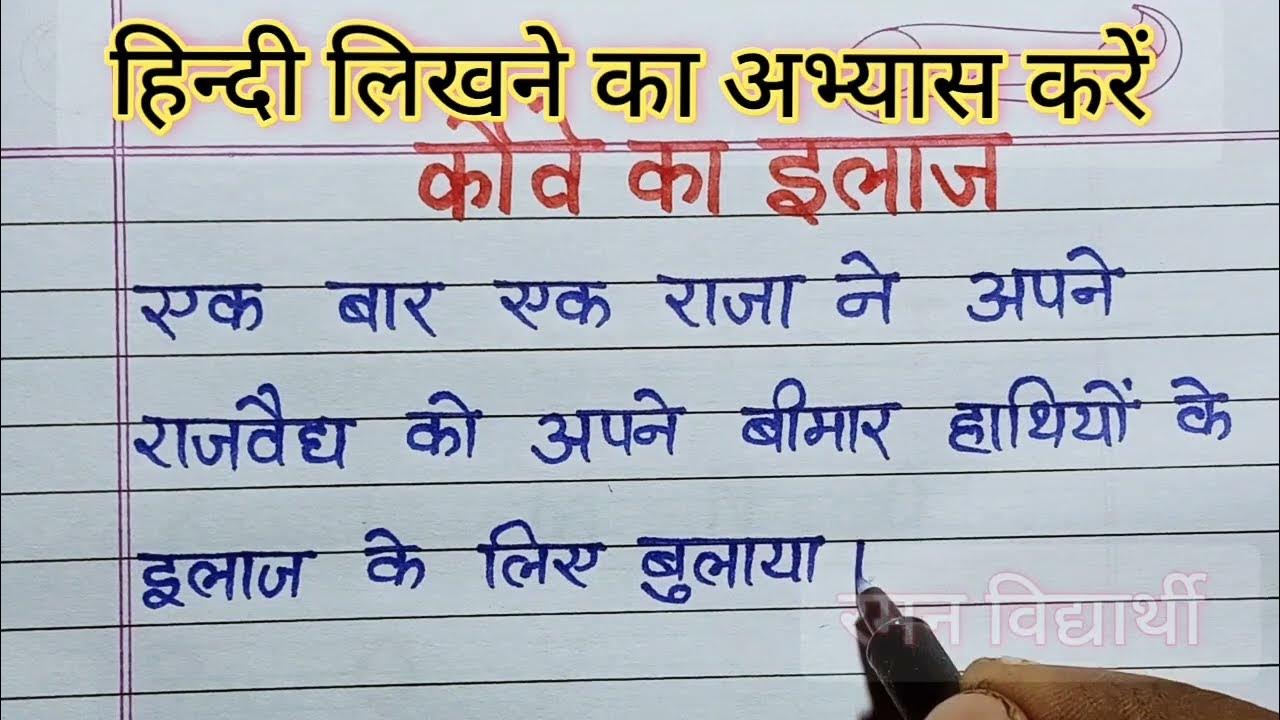 हिन्दी लिखने का अभ्यास करें
कौवे का इलाज
एक बार एक राजा ने अपने
राजवैद्य को अपने बीमार हाथियों के
इलाज के लिए बुलाया ।
रमन विद्यार्थी